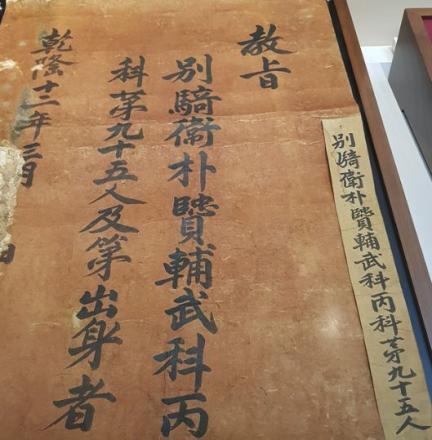 別騎衛朴贒輔武科丙科苐九十五人
教旨
別騎衛朴贒輔武科丙
科苐九十五人及第出身者
乾隆十二年三月
日